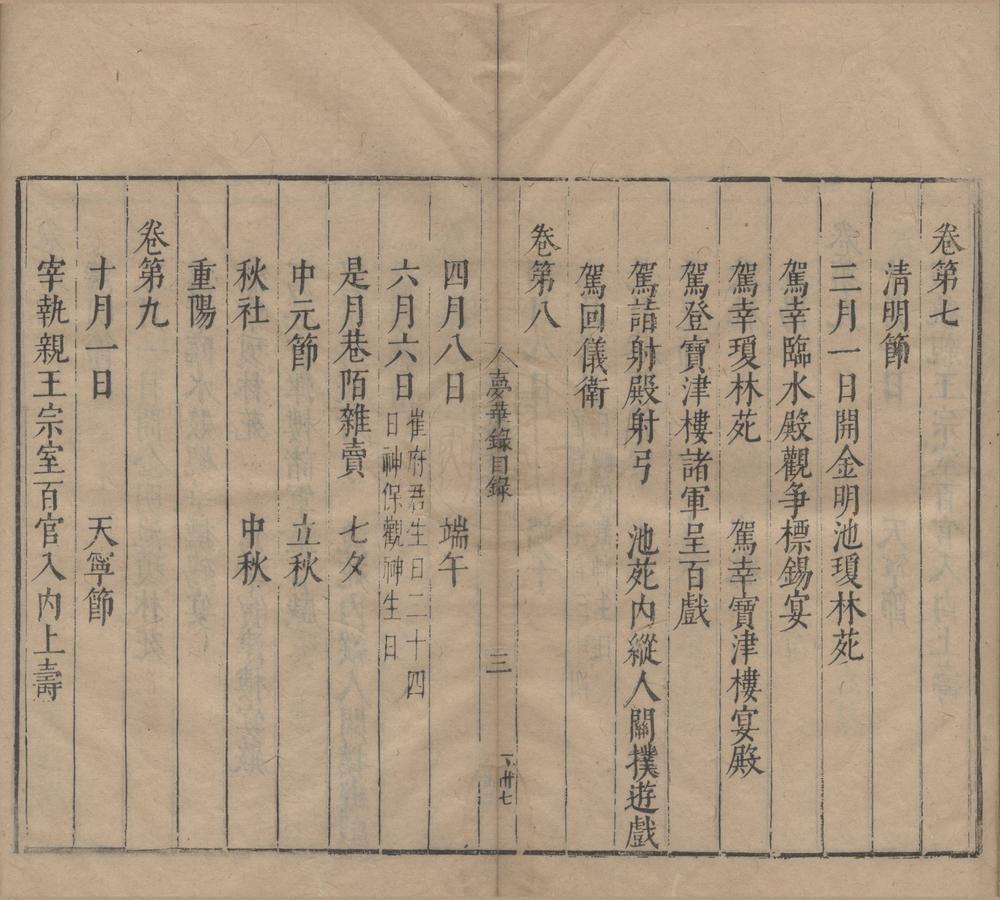 卷第七
清明節
三月一日開金明池瓊林苑
駕幸臨水殿觀争標錫宴
駕幸瓊林苑　駕幸寶津樓宴殿
駕登寶津樓諸軍呈百戲
駕詣射殿射弓　池苑内縱人關撲遊戲
駕回儀衛
卷第八
夢華錄目錄　三
四月八日　端午
六月六日　崔府君生日二十四
日神保觀神生日
是月巷陌雜賣　七夕
中元節　立秋
秋社　中秋
重陽
卷第九
十月一日　天寧節
宰執親王宗室百官入内上壽